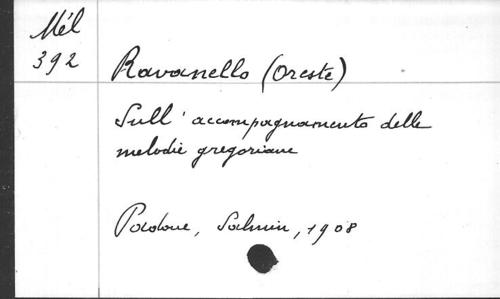 Mél
392
Ravanello (Oreste)
Sull' accompagnamento delle
melodie gregoriane
Padoue, Salmin, 1908